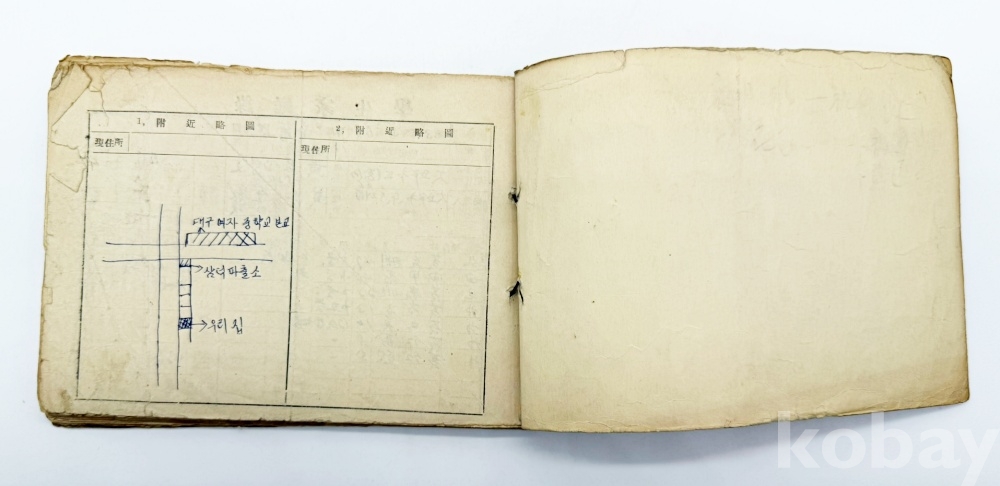 1, 附近略圖
現住所
대구 여자 중학교 분교
삼덕파출소
우리 집
2, 附近略圖
現住所
kobay